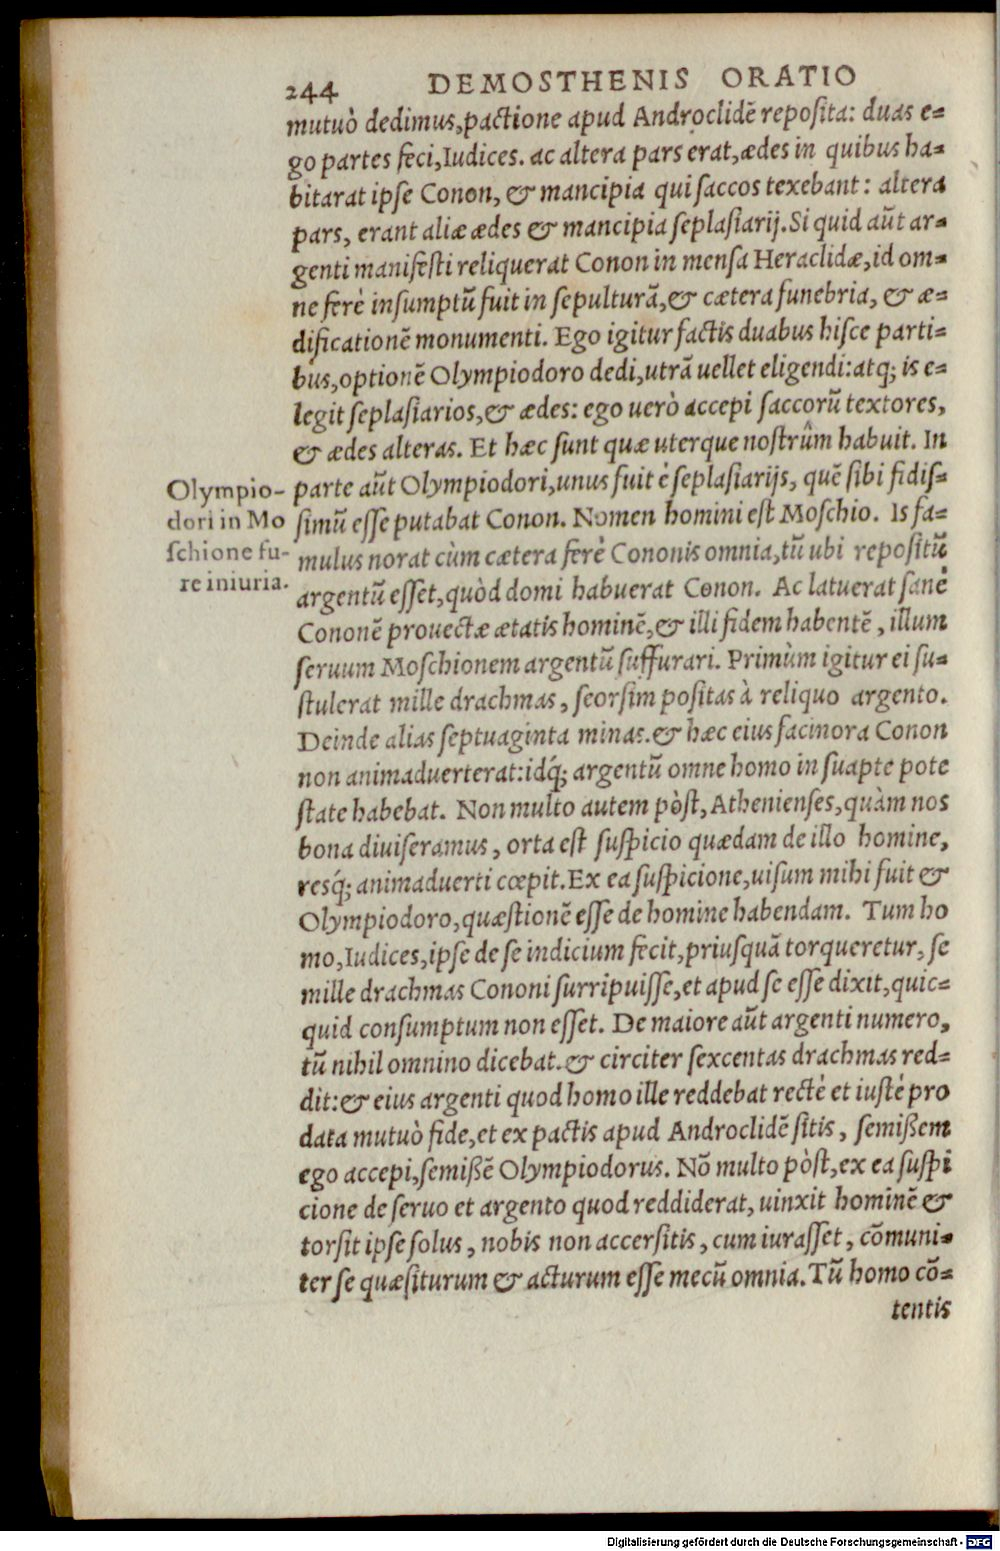 244 DEMOSTHENIS ORATIO
mutuò dedimus, pactione apud Androclidẽ reposita: duas e-
go partes feci, Iudices. ac altera pars erat, ædes in quibus ha-
bitarat ipse Conon, & mancipia qui saccos texebant: altera
pars, erant aliæ ædes & mancipia seplasiarij. Si quid aũt ar-
genti manifesti reliquerat Conon in mensa Heraclidæ, id om-
ne ferè insumptũ fuit in sepulturã, & cætera funebria, & æ-
dificationẽ monumenti. Ego igitur factis duabus hisce parti-
bus, optionẽ Olympiodoro dedi, utrã uellet eligendi: atq; is e-
legit seplasiarios, & ædes: ego uerò accepi saccorũ textores,
& ædes alteras. Et hæc sunt quæ uterque nostrûm habuit. In
parte aũt Olympiodori, unus fuit è seplasiarijs, quẽ sibi fidis-
simũ esse putabat Conon. Nomen homini est Moschio. Is fa-
mulus norat cùm cætera ferè Cononis omnia, tũ ubi repositũ
argentũ esset, quòd domi habuerat Conon. Ac latuerat sanè
Cononẽ prouectæ ætatis hominẽ, & illi fidem habentẽ, illum
seruum Moschionem argentũ suffurari. Primùm igitur ei su-
stulerat mille drachmas, seorsim positas à reliquo argento.
Deinde alias septuaginta minas. & hæc eius facinora Conon
non animaduerterat: idq́; argentũ omne homo in suapte pote
state habebat. Non multo autem pòst, Athenienses, quàm nos
bona diuiseramus, orta est suspicio quædam de illo homine,
resq́; animaduerti cœpit. Ex ea suspicione, uisum mihi fuit &
Olympiodoro, quæstionẽ esse de homine habendam. Tum ho
mo, Iudices, ipse de se indicium fecit, priusquã torqueretur, se
mille drachmas Cononi surripuisse, et apud se esse dixit, quic-
quid consumptum non esset. De maiore aũt argenti numero,
tũ nihil omnino dicebat. & circiter sexcentas drachmas red-
dit: & eius argenti quod homo ille reddebat rectè et iustè pro
data mutuò fide, et ex pactis apud Androclidẽ sitis, semißem
ego accepi, semißẽ Olympiodorus. Nõ multo pòst, ex ea suspi
cione de seruo et argento quod reddiderat, uinxit hominẽ &
torsit ipse solus, nobis non accersitis, cum iurasset, cõmuni-
ter se quæsiturum & acturum esse mecũ omnia. Tũ homo cõ-
tentis
Olympio-
dori in Mo
schione fu-
re iniuria.
Digitalisierung gefördert durch die Deutsche Forschungsgemeinschaft - DFG